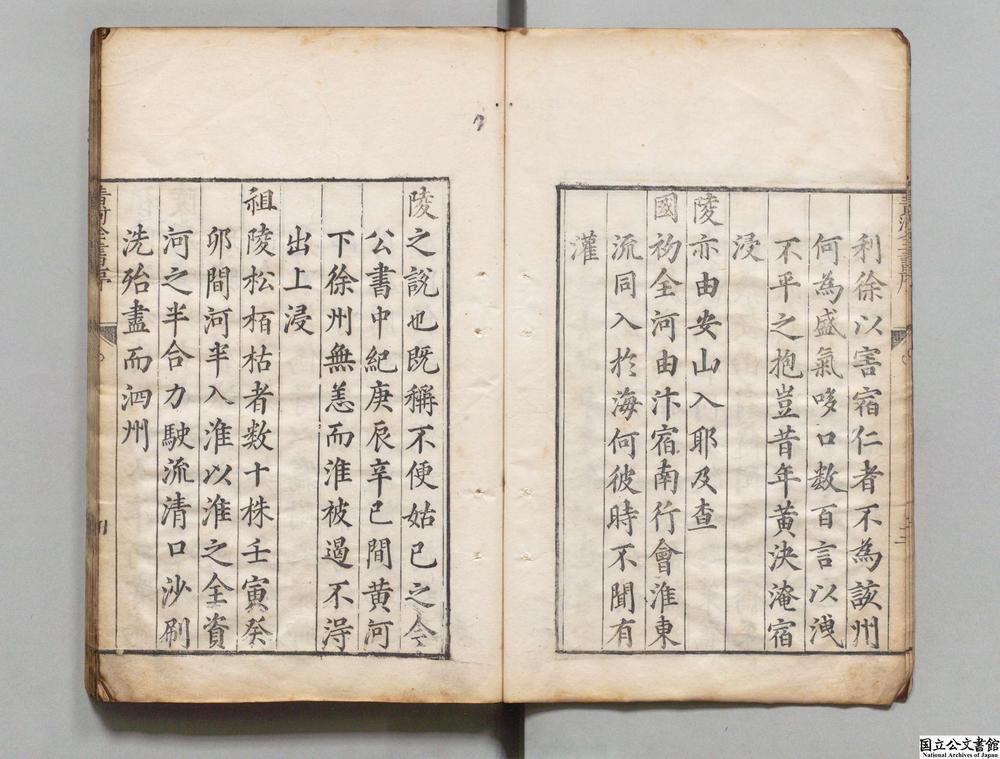 利徐以害宿仁者不為該州
何為盛氣哆口數百言以洩
不平之抱豈昔年黃決淹宿
浸
陵亦由安山入耶及查
國初全河由汴宿南行會淮東
流同入於海何彼時不聞有
灌
陵之說也既稱不便姑已之今
公書中紀庚辰辛巳間黃河
下徐州無恙而淮被遏不得
出上浸
祖陵松栢枯者数十株壬寅癸
卯間河半入淮以淮之全資
河之半合力駛流清口沙刷
洗殆盡而泗州
国立公文書館
National Archives of Japan